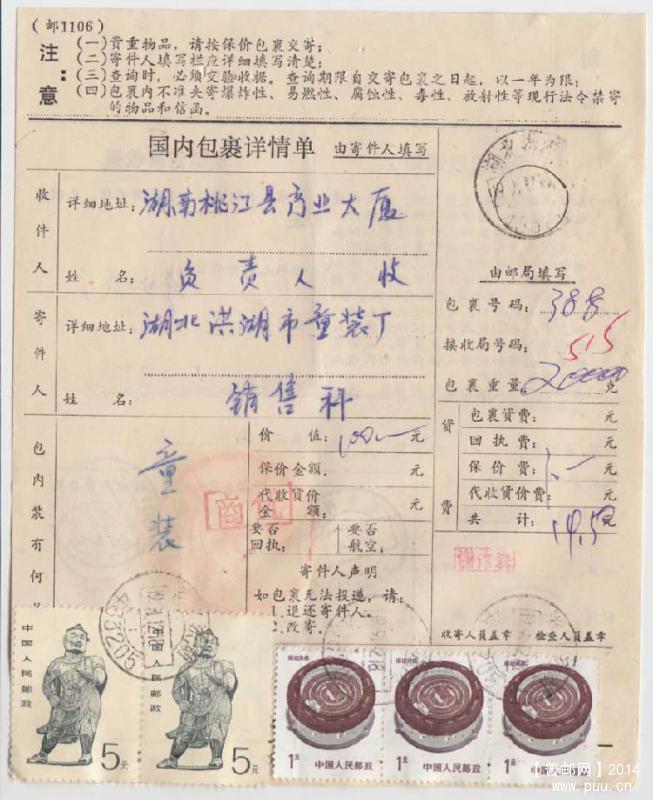 (邮1106)
注意:
(一)贵重物品,请按保价包裹交寄;
(二)寄件人填写栏应详细填写清楚;
(三)查询时,必须交验收据。查询期限自交寄包裹之日起,以一年为限;
(四)包裹内不准夹寄爆炸性、易燃性、腐蚀性、毒性、放射性等现行法令禁寄
的物品和信函。
国内包裹详情单 由寄件人填写
收件人
详细地址: 湖南桃江县商业大厦
姓名: 负责人 收
寄件人
详细地址: 湖北洪湖市童装厂
姓名: 销售科
由邮局填写
包裹号码: 388
接收局号码: 515
包裹重量: 20000 克
包内装有何
童装
价值: 100.— 元
保价金额. 元
代收货价金额: 元
要否回执: 要否航空:
寄件人声明
如包裹无法投递,请:
1.退还寄件人。
2.改寄。
资费
包裹资费: 元
回执费: 元
保价费: 1.— 元
代收货价费: 元
共计: 19.50 元
收寄人员盖章 检查人员盖章
433205
中国人民邮政
5元
中国人民邮政
5元
福建民居
1元 中国人民邮政
福建民居
1元 中国人民邮政
福建民居
1元 中国人民邮政
【普邮网】2014
www.puu.cn